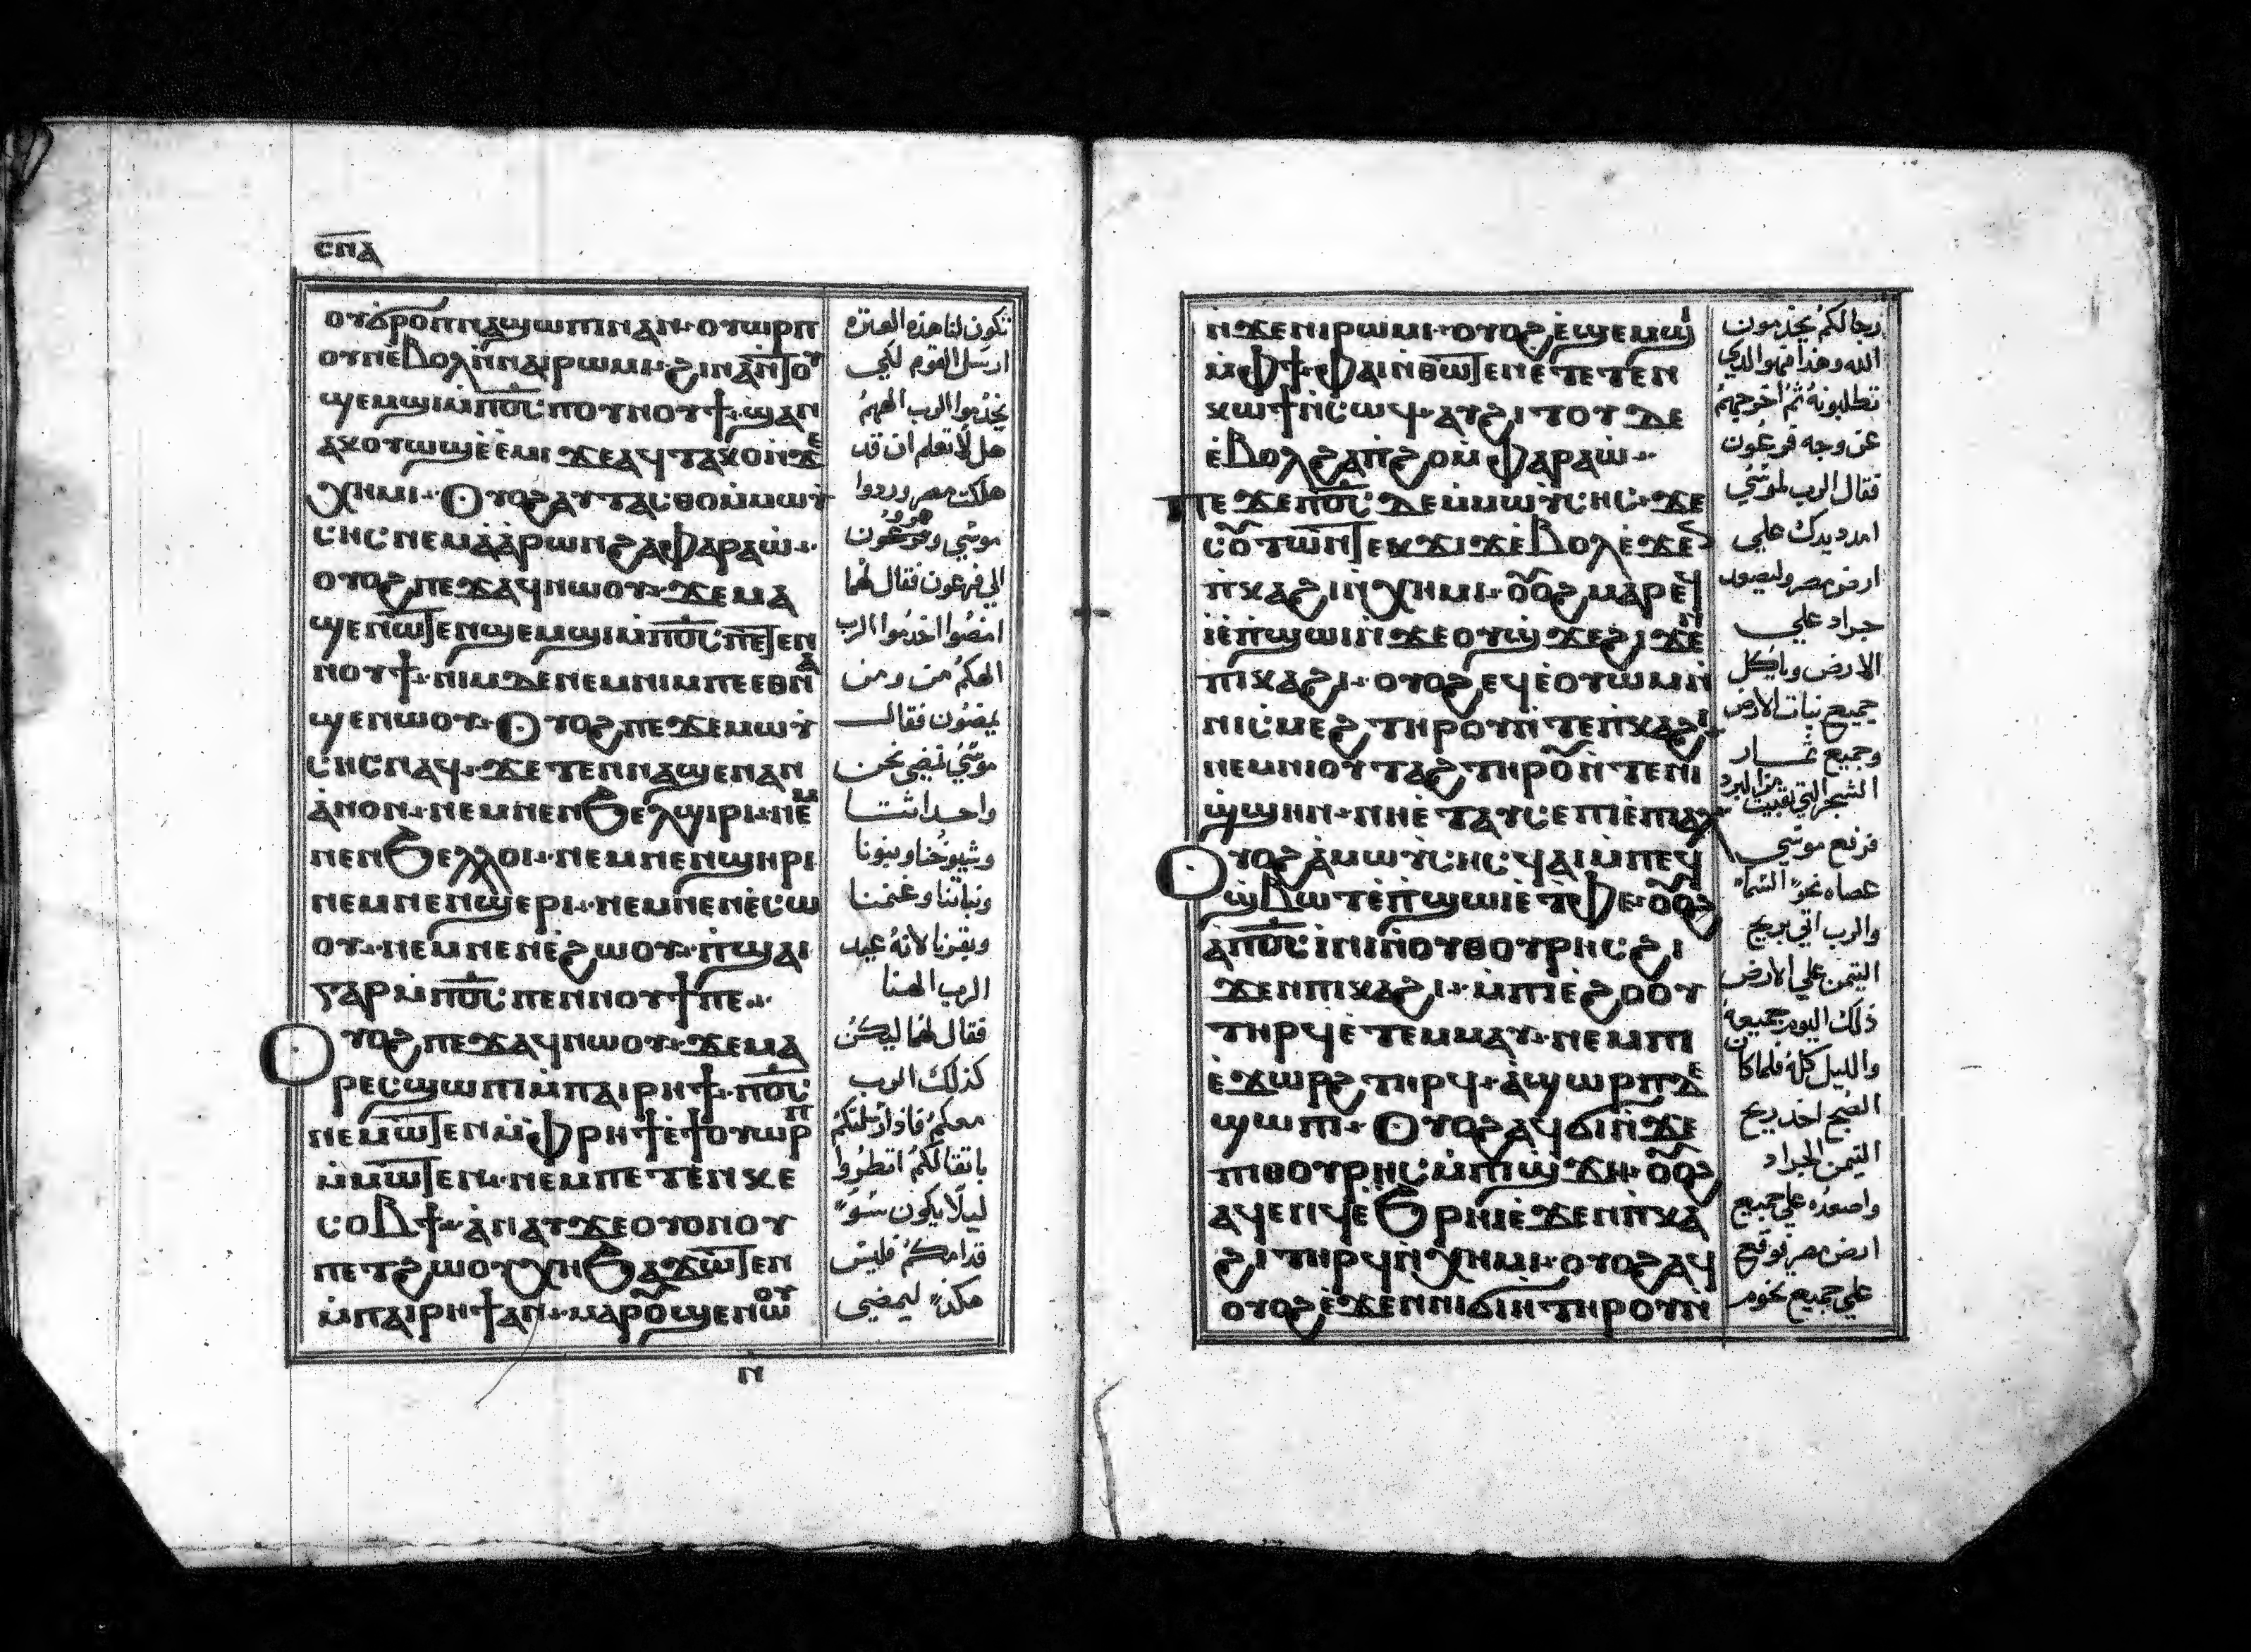 ⲥⲡⲁ
ⲟⲩϭⲣⲟⲡⲛⲁϣⲱⲡⲓⲛⲁⲛ· ⲟⲩⲱⲣⲡ
ⲟⲩⲛⲉ̀ⲃⲟⲗⲛ̀ⲛⲁⲓⲣⲱⲙⲓ· ϩⲓⲛⲁⲛ̀ⲧⲟⲩ
ϣⲉⲙϣⲓⲙ̀ⲡⲟ̅ⲥ̅ ⲡⲟⲩⲛⲟⲩϯ· ϣⲁⲛ
ⲁⲕⲟⲩⲱϣⲉ̀ⲉ̀ⲙⲓ ϫⲉⲁϥⲧⲁⲕⲟⲛ̀ϫⲉ
ⲭⲏⲙⲓ· Ⲟⲩⲟϩⲁⲩⲧⲁⲥⲑⲟⲙ̀ⲙⲱⲩ̀
ⲥⲏⲥ ⲛⲉⲙⲁ̀ⲁ̀ⲣⲱⲛϩⲁⲫⲁⲣⲁⲱ̀·
ⲟⲩⲟϩⲡⲉϫⲁϥⲛⲱⲟⲩ· ϫⲉⲙⲁ
ϣⲉⲛⲱⲧⲉⲛϣⲉⲙϣⲓⲙ̀ⲡⲟ̅ⲥ̅ ⲡⲉⲧⲉⲛ
ⲛⲟⲩϯ· ⲛⲓⲙⲇⲉⲛⲉⲙⲛⲓⲙⲡⲉⲉⲑⲛⲁ
ϣⲉⲛⲱⲟⲩ· Ⲟⲩⲟϩⲡⲉϫⲉⲙⲱⲩ̀
ⲥⲏⲥⲛⲁϥ· ϫⲉⲧⲉⲛⲛⲁϣⲉⲛⲁⲛ
ⲁ̀ⲛⲟⲛ· ⲛⲉⲙⲛⲉⲛϧⲉⲗϣⲓⲣⲓ· ⲛⲉⲙ
ⲛⲉⲛϧⲉⲗⲗⲟⲓ· ⲛⲉⲙⲛⲉⲛϣⲏⲣⲓ
ⲛⲉⲙⲛⲉⲛϣⲉⲣⲓ· ⲛⲉⲙⲛⲉⲛⲉ̀ⲥⲱ
ⲟⲩ· ⲛⲉⲙⲛⲉⲛⲉ̀ϩⲱⲟⲩ· ⲡ̀ϣⲁⲓ
ⲅⲁⲣⲙ̀ⲡⲟ̅ⲥ̅ ⲡⲉⲛⲛⲟⲩϯⲡⲉ·
Ⲟⲩⲟϩⲡⲉϫⲁϥⲛⲱⲟⲩ· ϫⲉⲙⲁ
ⲣⲉⲥϣⲱⲡⲓⲙ̀ⲡⲁⲓⲣⲏϯ· ⲡⲟ̅ⲥ̅
ⲛⲉⲙⲱⲧⲉⲛⲙ̀ⲫⲣⲏϯⲉ̀ϯⲟⲩⲱⲣⲡ
ⲙ̀ⲙⲱⲧⲉⲛ· ⲛⲉⲙⲡⲉⲧⲉⲛⲕⲉ
ⲥⲟⲃϯ· ⲁ̀ⲛⲁⲩϫⲉⲟⲩⲟⲛⲟⲩ
ⲡⲉⲧϩⲱⲟⲩⲭⲏϧⲁϫⲱⲧⲉⲛ
ⲙ̀ⲡⲁⲓⲣⲏϯⲁⲛ· ⲙⲁⲣⲟ̃ϣⲉⲛⲱⲟⲩ
ⲛ
تكون لنا هذه العثره
ارسل القوم لكي
يخدموا الرب الههم
هل لا تعلم ان قد
هلكت مصر وردوا
موسي وهرون
الي فرعون فقال لهما
امضوا اخدموا الرب
الهكم من ومن
يمضون فقال
موسي نمضي نحن
واحداثنا
وشيوخنا وبنونا
وبناتنا وغنمنا
وبقرنا لانه عيد
الرب الهنا
فقال لهما ليكن
كذلك الرب
معكم فاذا ارسلتكم
باثقالكم انظروا
ليلا يكون سوء
قدامكم فليس
هكذا ليمضي
ⲛ̀ϫⲉⲛⲓⲣⲱⲙⲓ· ⲟⲩⲟϩⲉ̀ϣⲉⲙϣⲓ
ⲙ̀ⲫϯ· ⲫⲁⲓⲛ̀ⲑⲱⲧⲉⲛⲉⲧⲉⲧⲉⲛ
ⲕⲱϯⲛ̀ⲥⲱϥ· ⲁⲩϩⲓⲧⲟⲩⲇⲉ
ⲉ̀ⲃⲟⲗϩⲁⲡ̀ϩⲟⲙ̀ⲫⲁⲣⲁⲱ̀·
ⲡⲉϫⲉⲡⲟ̅ⲥ̅ ⲇⲉⲙ̀ⲙⲱⲩ̀ⲥⲏⲥ· ϫⲉ
ⲥⲟ̃ⲧⲱⲛⲧⲉⲕϫⲓϫⲉ̀ⲃⲟⲗⲉ̀ϫⲉⲛ
ⲡ̀ⲕⲁϩⲓⲛ̀ⲭⲏⲙⲓ· ⲟ̃ⲟϩⲙⲁⲣⲉϥ
ⲓ̀ⲉ̀ⲡ̀ϣⲱⲓⲛ̀ϫⲉⲟⲩϣϫⲉϩⲓϫⲉⲛ
ⲡⲓⲕⲁϩⲓ· ⲟⲩⲟϩⲉϥⲉ̀ⲟⲩⲱⲙⲛ̀
ⲛⲓⲥⲙⲉϩⲧⲏⲣⲟⲩⲛ̀ⲧⲉⲡ̀ⲕⲁϩⲓ·
ⲛⲉⲙⲛⲓⲟⲩⲧⲁϩⲧⲏⲣⲟ̃ⲛ̀ⲧⲉⲛⲓ
ϣ̀ϣⲏⲛ· ⲛⲏⲉ̀ⲧⲁⲩⲥⲉⲡⲓⲉ̀ⲡⲁⲗ
Ⲟⲩⲟϩⲁ̀ⲙⲱⲩ̀ⲥⲏⲥϥⲁⲓⲙ̀ⲡⲉϥ
ϣ̀ⲃⲱⲧⲉ̀ⲡ̀ϣⲱⲓⲉ̀ⲧ̀ⲫⲉ· ⲟ̃ⲟϩ
ⲁ̀ⲡⲟ̅ⲥ̅ ⲓ̀ⲛⲓⲛ̀ⲟⲩⲑⲟⲩⲣⲏⲥϩⲓ
ϫⲉⲛⲡⲓⲕⲁϩⲓ· ⲙ̀ⲡⲓⲉ̀ϩⲟⲟⲩ
ⲧⲏⲣϥⲉ̀ⲧⲉⲙⲙⲁⲩ· ⲛⲉⲙⲡⲓ
ⲉ̀ϫⲱⲣϩⲧⲏⲣϥ· ⲁ̀ϣⲱⲣⲡⲇⲉ
ϣⲱⲡⲓ· Ⲟⲩⲟϩⲁϥϭⲓⲛ̀ϫⲉ
ⲡⲓⲑⲟⲩⲣⲏⲥⲙ̀ⲡⲓϣϫⲏ· ⲟ̃ⲟϩ
ⲁϥⲉⲛϥⲉ̀ϧ̀ⲣⲏⲓⲉ̀ϫⲉⲛⲡ̀ⲕⲁ
ϩⲓⲧⲏⲣϥⲛ̀ⲭⲏⲙⲓ· ⲟⲩⲟϩⲁϥ
ⲟⲩⲟϩⲉ̀ϫⲉⲛⲛⲓϭⲓⲏⲧⲏⲣⲟⲩⲛ̀
رجالكم يخدمون
الله وهذا فهو الذي
تطلبونه ثم اخرجهم
عن وجه فرعون
فقال الرب لموسي
امدد يدك علي
ارض مصر وليصعد
جراد علي
الارض وياكل
جميع نبات الارض
وجميع ثمار
الشجر التي بقيت من البرد
فرفع موسي
عصاه نحو السما
والرب اتي بريح
التيمن علي الارض
ذلك اليوم جميعه
والليل كله فلما كان
الصبح اخذ ريح
التيمن الجراد
واصعده علي جميع
ارض مصر فوقع
علي جميع تخوم